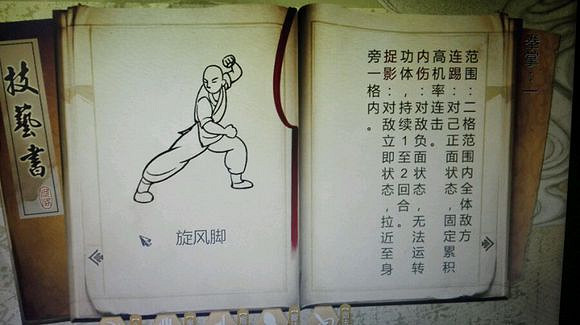 技藝書
旋风脚
拳掌：一
范围：二格范围内全体敌方
连踢：对己正面状态，固定累积
高机率连击。
内伤：对敌负面状态，无法运转
功体，持续1至2回合。
捉影：对敌立即状态，拉近至身
旁一格内。